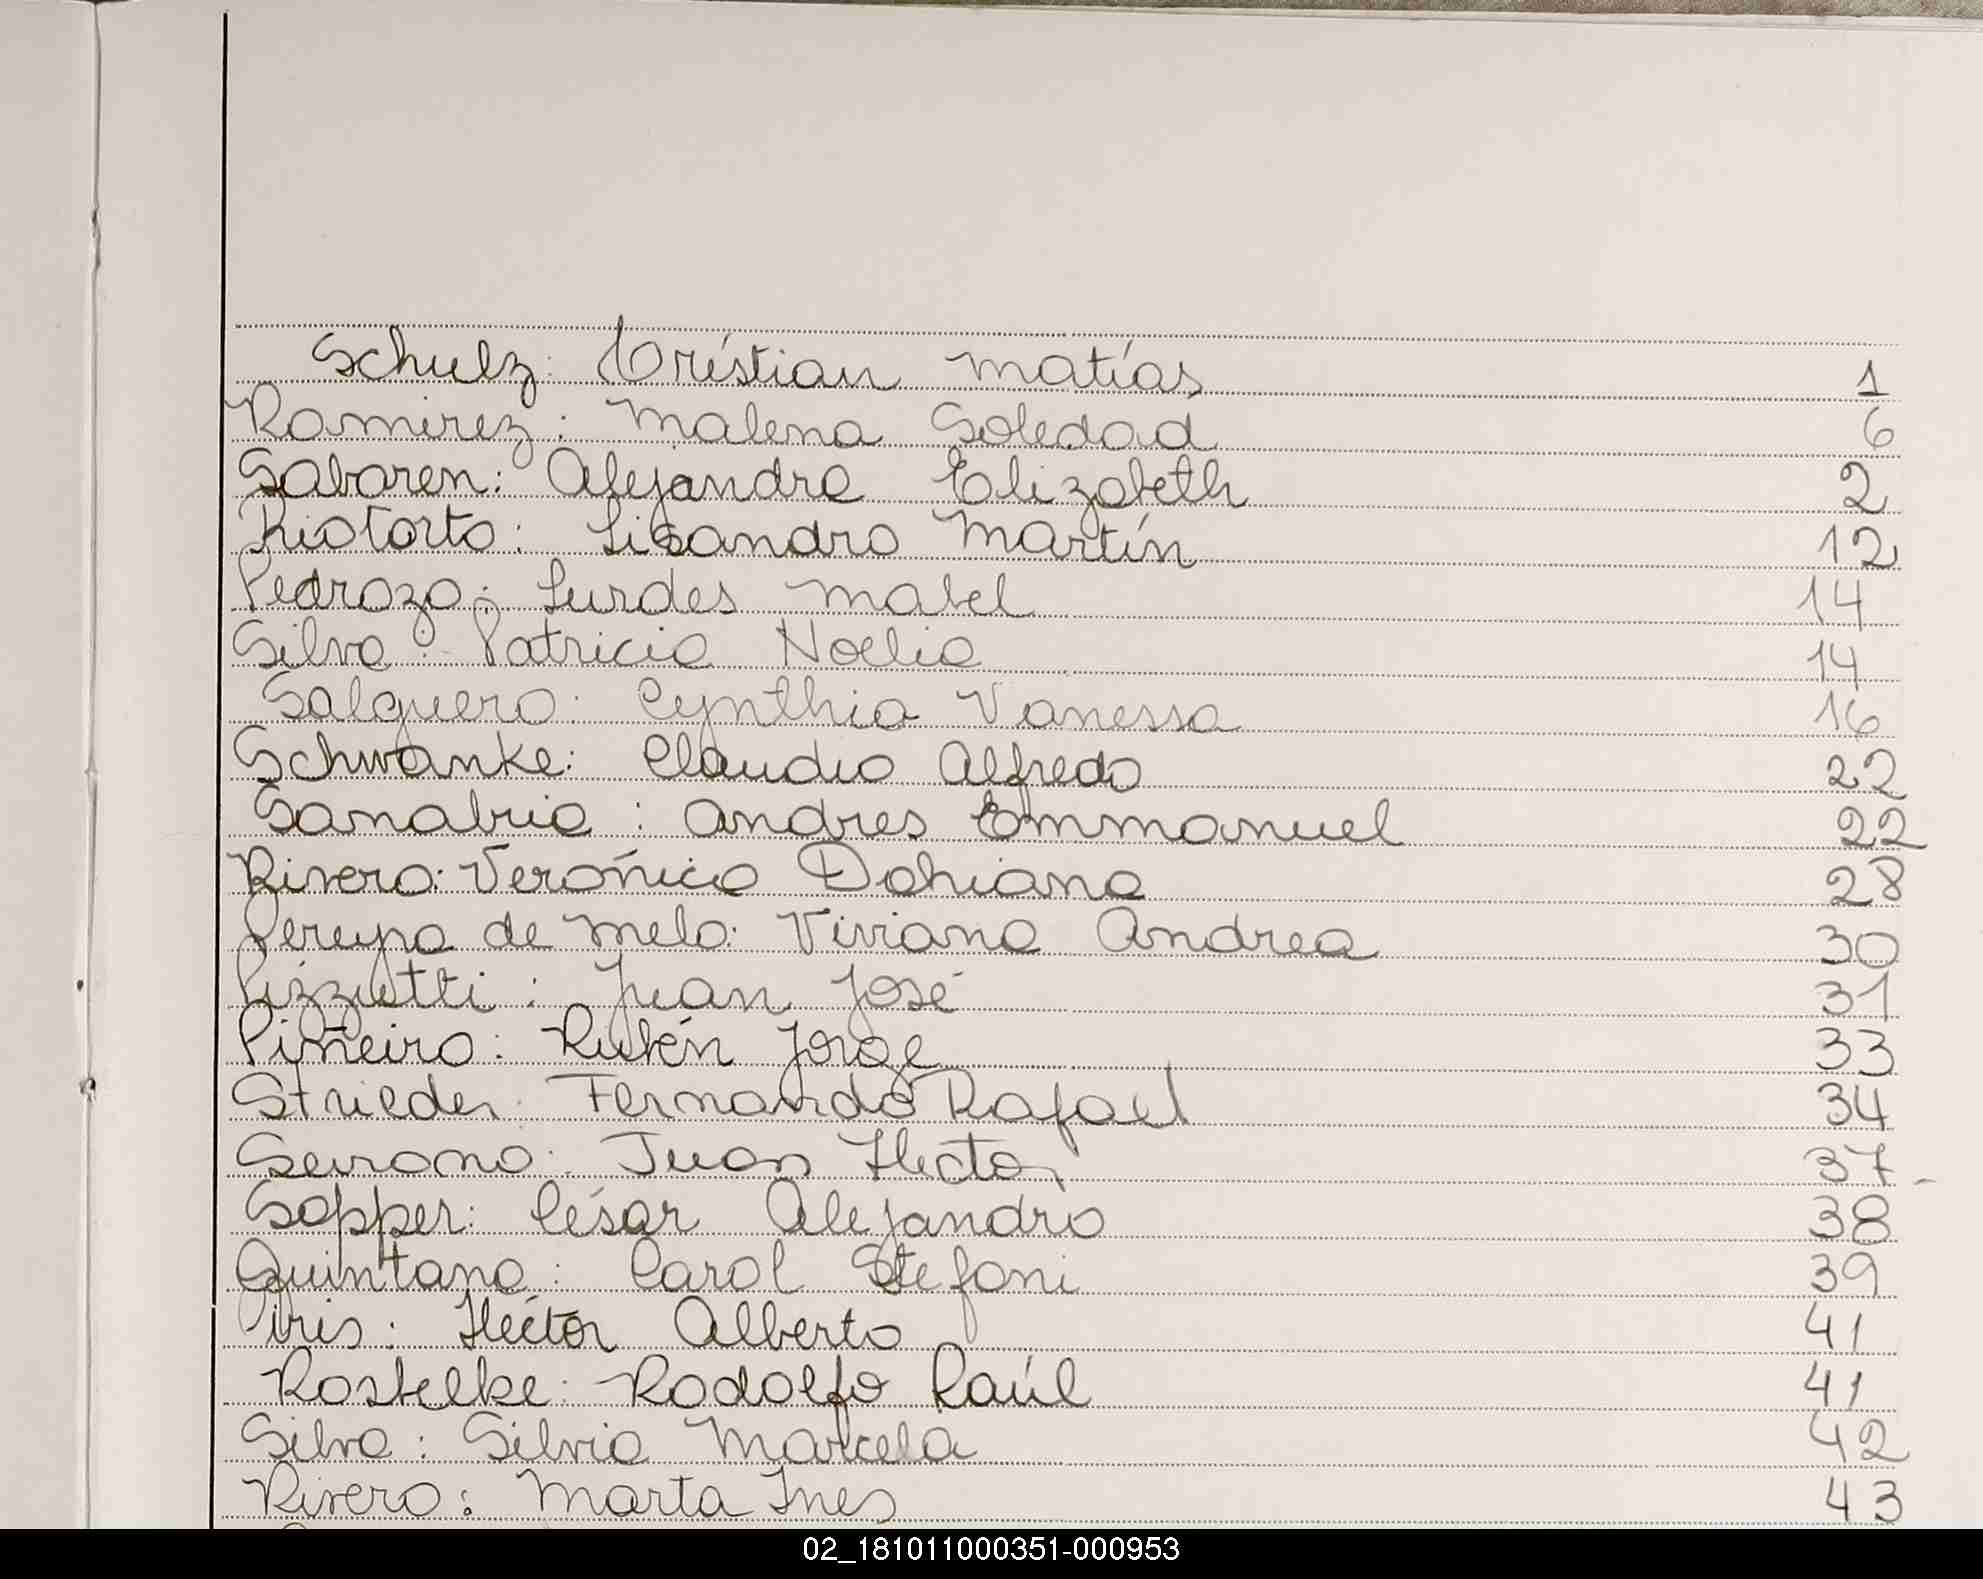 Schulz: Cristian Matías 1
Ramirez: Malena Soledad 6
Sabaren: Alejandra Elizabeth 2
Riotorto: Lisandro Martín 12
Pedrozo: Lurdes Mabel 14
Silva: Patricia Noelia 14
Salguero: Cynthia Vanessa 16
Schwanke: Claudio Alfredo 22
Sanabria: Andres Emmanuel 22
Rivero: Verónica Dahiana 28
Pereyra de Melo: Viviana Andrea 30
Pizziutti: Juan José 31
Piñeiro: Rubén Jorge 33
Strieder: Fernando Rafael 34
Serrano: Juan Hector 37
Sopper: César Alejandro 38
Quintana: Carol Stefani 39
Piris: Héctor Alberto 41
Rostelke: Rodolfo Raúl 41
Silva: Silvia Marcela 42
Rivero: Marta Ines 43
02_181011000351-000953